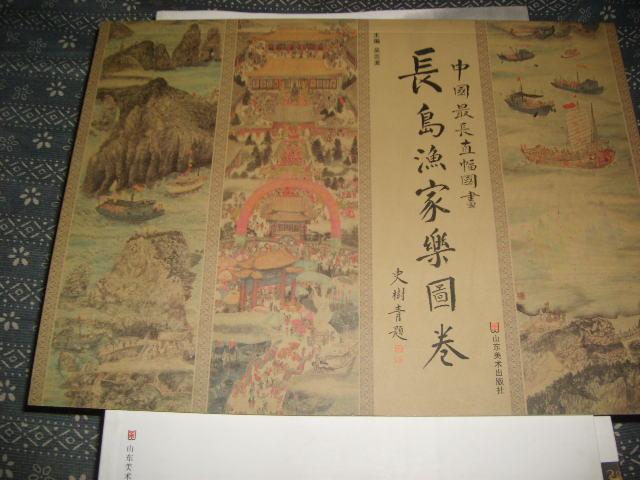 中國最長直幅國畫
長島漁家樂圖卷
史樹青題
主编
山东美术出版社
山东美术